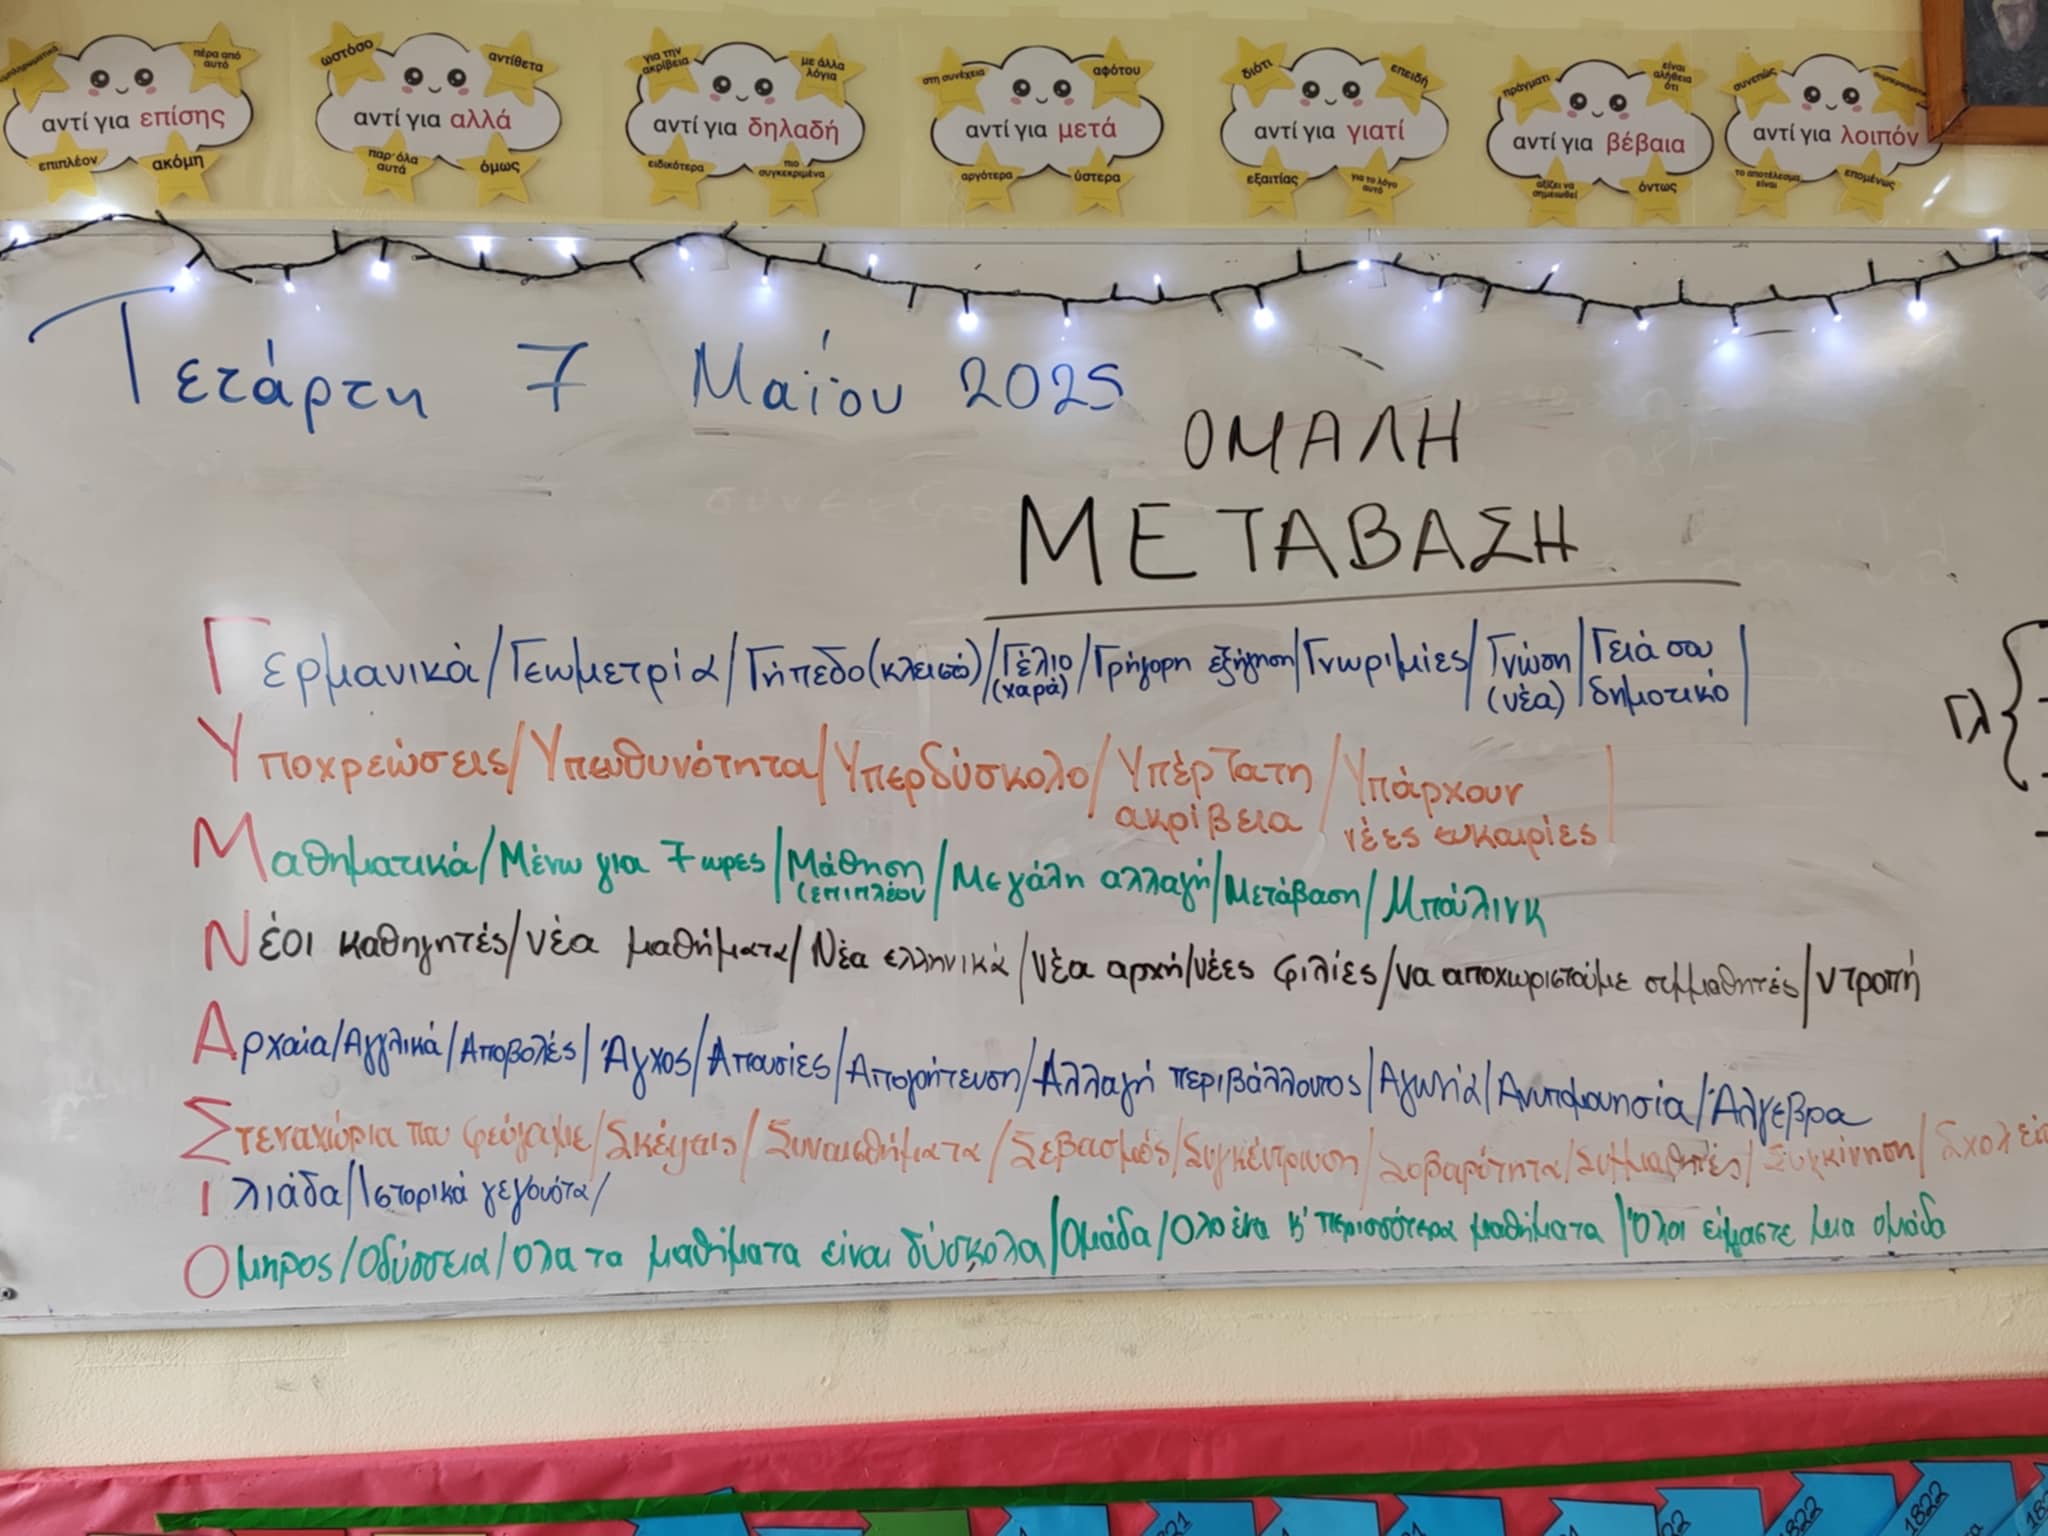 πέρα από αυτό
αντί για επίσης
επιπλέον ακόμη
ωστόσο αντίθετα
αντί για αλλά
παρ' όλα αυτά όμως
για την ακρίβεια με άλλα λόγια
αντί για δηλαδή
ειδικότερα πιο συγκεκριμένα
στη συνέχεια αφότου
αντί για μετά
αργότερα ύστερα
διότι επειδή
αντί για γιατί
εξαιτίας για το λόγο αυτό
πράγματι είναι αλήθεια ότι
αντί για βέβαια
αξίζει να σημειωθεί όντως
συνεπώς
αντί για λοιπόν
το αποτέλεσμα είναι επομένως
Τετάρτη 7 Μαΐου 2025
ΟΜΑΛΗ
ΜΕΤΑΒΑΣΗ
Γερμανικά/Γεωμετρία/Γήπεδο(κλειστό)/Γέλιο (χαρά)/Γρήγορη εξήγηση/Γνωριμίες/Γνώση (νέα)/Γειά σου δημοτικό/
Υποχρεώσεις/Υπευθυνότητα/Υπερδύσκολο/Υπέρτατη ακρίβεια/Υπάρχουν νέες ευκαιρίες/
Μαθηματικά/Μένω για 7 ωρες/Μάθηση (επιπλέον/Μεγάλη αλλαγή/Μετάβαση/Μπούλινκ
Νέοι καθηγητές/νέα μαθήματα/Νέα ελληνικά/Νέα αρχή/νέες φιλίες/να αποχωριστούμε συμμαθητές/ντροπή
Αρχαία/Αγγλικά/Αποβολές/Άγχος/Απουσίες/Απογοήτευση/Αλλαγή περιβάλλοντος/Αγωνία/Ανυπομονησία/Άλγεβρα
Στεναχώρια που φεύγουμε/Σκέψεις/Συναισθήματα/Σεβασμός/Συγκέντρωση/Σοβαρότητα/Συμμαθητές/Συγκίνηση/
Ιλιάδα/Ιστορικά γεγονότα/
Ομηρος/Οδύσσεια/Ολα τα μαθήματα είναι δύσκολα/Ομάδα/Ολο ένα κ' περισσότερα μαθήματα/Όλοι είμαστε μια ομάδα
Γλ
1822
1822